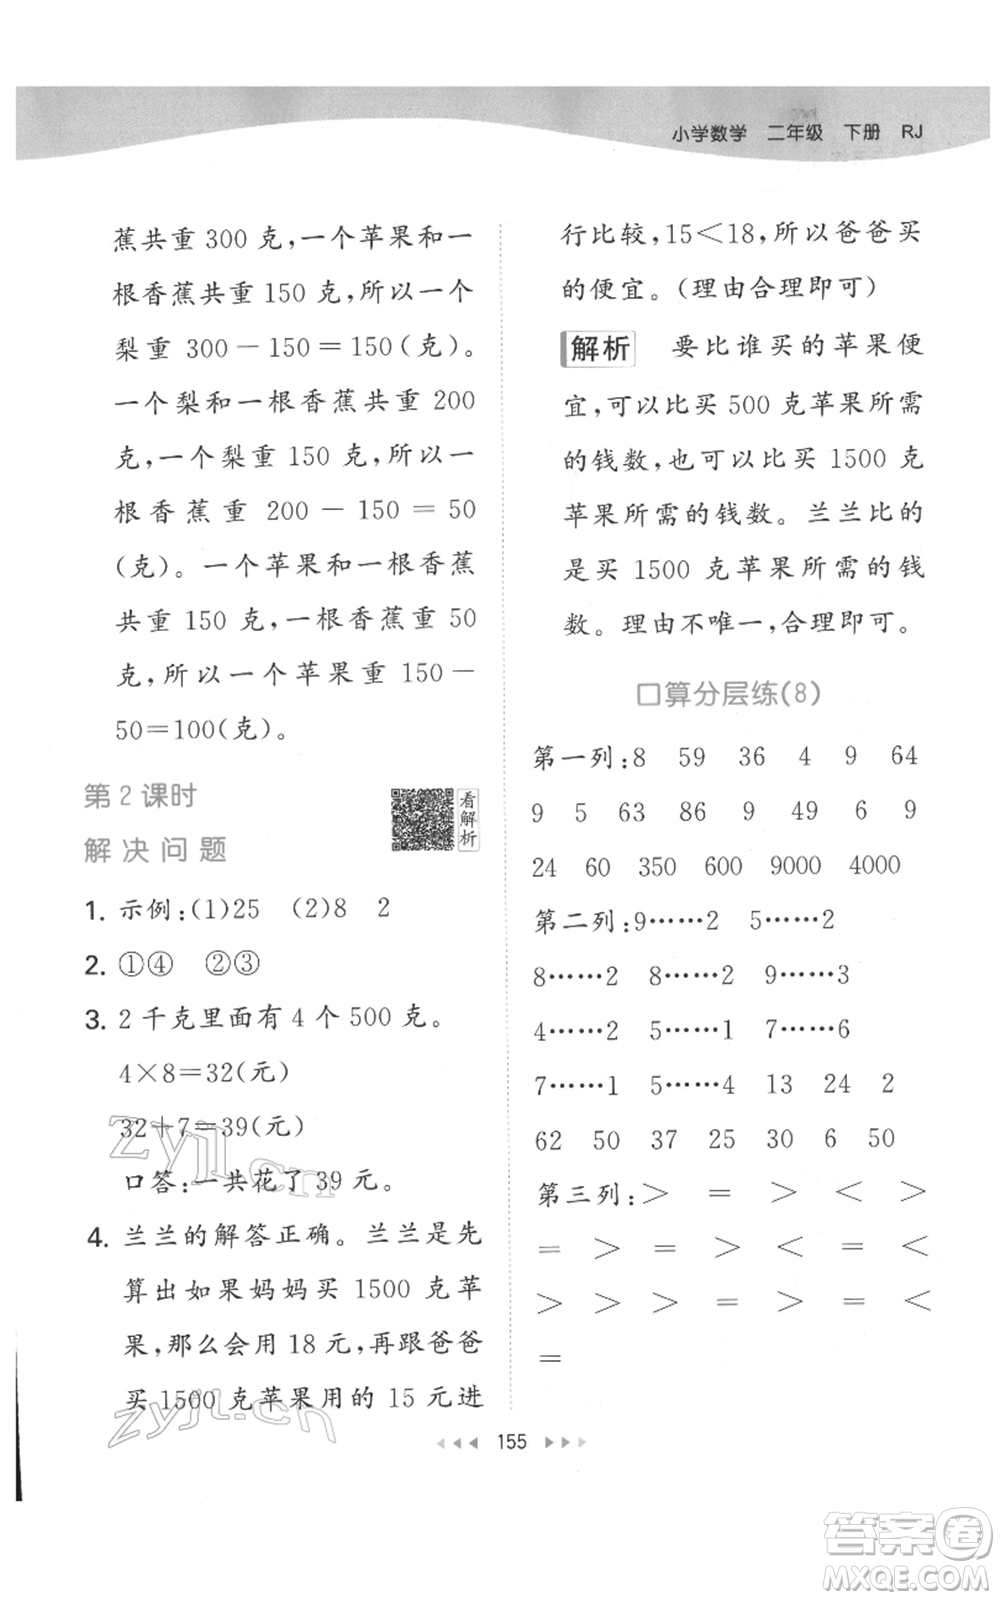 小学数学 二年级 下册 RJ
蕉共重 300 克,一个苹果和一
根香蕉共重 150 克,所以一个
梨重 300－150＝150(克)。
一个梨和一根香蕉共重 200
克,一个梨重 150 克,所以一
根香蕉重 200－150＝50
(克)。一个苹果和一根香蕉
共重 150 克,一根香蕉重 50
克,所以一个苹果重 150－
50＝100(克)。
第 2 课时
解决问题
看解析
1. 示例:(1)25 (2)8 2
2. ①④ ②③
3. 2 千克里面有 4 个 500 克。
4×8＝32(元)
32＋7＝39(元)
口答:一共花了 39 元。
4. 兰兰的解答正确。兰兰是先
算出如果妈妈买 1500 克苹
果,那么会用 18 元,再跟爸爸
买 1500 克苹果用的 15 元进
行比较,15＜18,所以爸爸买
的便宜。(理由合理即可)
解析 要比谁买的苹果便
宜,可以比买 500 克苹果所需
的钱数,也可以比买 1500 克
苹果所需的钱数。兰兰比的
是买 1500 克苹果所需的钱
数。理由不唯一,合理即可。
口算分层练(8)
第一列:8 59 36 4 9 64
9 5 63 86 9 6 9
24 60 350 600 9000 4000
第二列:9……2 5……2
8……2 8……2 9……3
4……2 5……1 7……6
7……1 5……4 13 24 2
62 50 37 25 30 6 50
第三列:＞ ＝ ＞ ＜ ＞
＝ ＞ ＝ ＞ ＝ ＜
＞ ＞ ＞ ＝ ＞ ＝ ＜
＝
155
zyjl.cn
zyjl.cn
答案卷
MXQE.COM